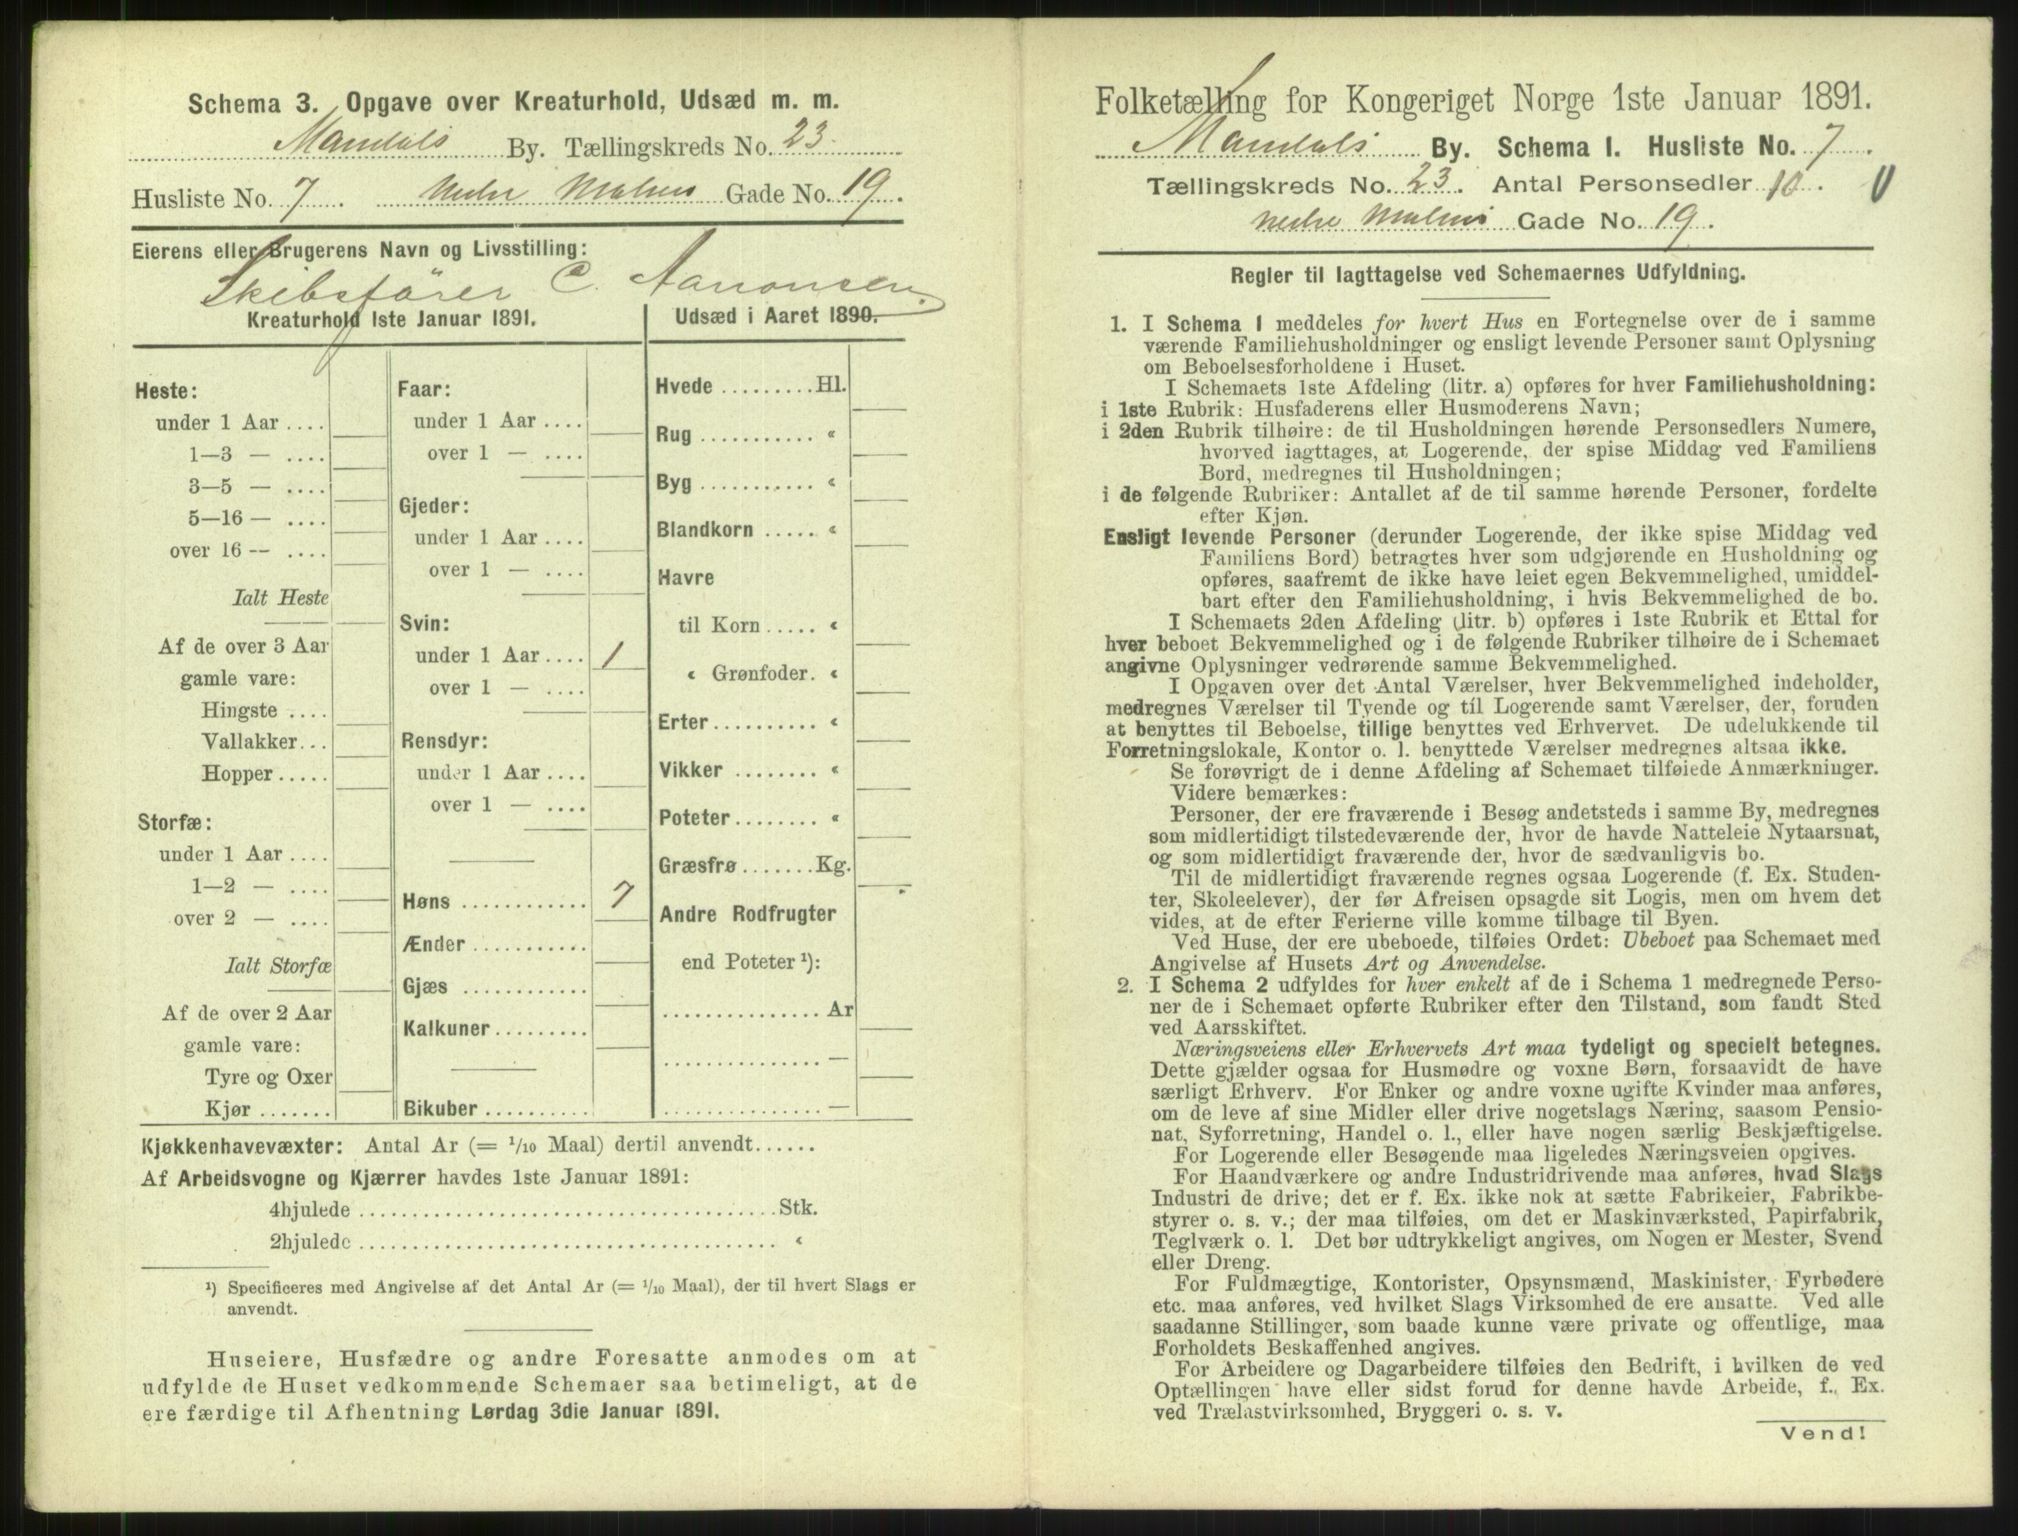 Schema 3. Opgave over Kreaturhold, Udsæd m. m.
Mandals By. Tællingskreds No. 23.
Husliste No. 7. Nedre Malmø Gade No. 19.
Eierens eller Brugerens Navn og Livsstilling:
Skibsfører C. Aanonsen.
Kreaturhold 1ste Januar 1891.
Udsæd i Aaret 1890.
Heste:
under 1 Aar ....
1—3 — ....
3—5 — ....
5—16 — ....
over 16 — ....
Ialt Heste
Af de over 3 Aar
gamle vare:
Hingste ....
Vallakker...
Hopper .....
Storfæ:
under 1 Aar ....
1—2 — ....
over 2 — ....
Ialt Storfæ
Af de over 2 Aar
gamle vare:
Tyre og Oxer
Kjør .......
Faar:
under 1 Aar ....
over 1 — ....
Gjeder:
under 1 Aar ....
over 1 — ....
Svin:
under 1 Aar .... 1
over 1 — ....
Rensdyr:
under 1 Aar ....
over 1 — ....
Høns ............ 7
Ænder ...........
Gjæs ............
Kalkuner.........
Bikuber ..........
Hvede .........Hl.
Rug ........... «
Byg ........... «
Blandkorn ..... «
Havre
til Korn ..... «
« Grønfoder. «
Erter .......... «
Vikker ........ «
Poteter ........ «
Græsfrø .......Kg.
Andre Rodfrugter
end Poteter ¹):
............... Ar
............... —
............... —
Kjøkkenhavevæxter: Antal Ar (= 1/10 Maal) dertil anvendt......
Af Arbeidsvogne og Kjærrer havdes 1ste Januar 1891:
4hjulede ........................................Stk.
2hjulede ........................................ «
¹) Specificeres med Angivelse af det Antal Ar (= 1/10 Maal), der til hvert Slags er
anvendt.
Huseiere, Husfædre og andre Foresatte anmodes om at
udfylde de Huset vedkommende Schemaer saa betimeligt, at de
ere færdige til Afhentning Lørdag 3die Januar 1891.
Folketælling for Kongeriget Norge 1ste Januar 1891.
Mandals By. Schema I. Husliste No. 7.
Tællingskreds No. 23. Antal Personsedler 10.
Nedre Malmø Gade No. 19.
Regler til Iagttagelse ved Schemaernes Udfyldning.
1. I Schema 1 meddeles for hvert Hus en Fortegnelse over de i samme
værende Familiehusholdninger og ensligt levende Personer samt Oplysning
om Beboelsesforholdene i Huset.
I Schemaets 1ste Afdeling (litr. a) opføres for hver Familiehusholdning:
i 1ste Rubrik: Husfaderens eller Husmoderens Navn;
i 2den Rubrik tilhøire: de til Husholdningen hørende Personsedlers Numere,
hvorved iagttages, at Logerende, der spise Middag ved Familiens
Bord, medregnes til Husholdningen;
i de følgende Rubriker: Antallet af de til samme hørende Personer, fordelte
efter Kjøn.
Ensligt levende Personer (derunder Logerende, der ikke spise Middag ved
Familiens Bord) betragtes hver som udgjørende en Husholdning og
opføres, saafremt de ikke have leiet egen Bekvemmelighed, umiddel-
bart efter den Familiehusholdning, i hvis Bekvemmelighed de bo.
I Schemaets 2den Afdeling (litr. b) opføres i 1ste Rubrik et Ettal for
hver beboet Bekvemmelighed og i de følgende Rubriker tilhøire de i Schemaet
angivne Oplysninger vedrørende samme Bekvemmelighed.
I Opgaven over det Antal Værelser, hver Bekvemmelighed indeholder,
medregnes Værelser til Tyende og til Logerende samt Værelser, der, foruden
at benyttes til Beboelse, tillige benyttes ved Erhvervet. De udelukkende til
Forretningslokale, Kontor o. l. benyttede Værelser medregnes altsaa ikke.
Se forøvrigt de i denne Afdeling af Schemaet tilføiede Anmærkninger.
Videre bemærkes:
Personer, der ere fraværende i Besøg andetsteds i samme By, medregnes
som midlertidigt tilstedeværende der, hvor de havde Natteleie Nytaarsnat,
og som midlertidigt fraværende der, hvor de sædvanligvis bo.
Til de midlertidigt fraværende regnes ogsaa Logerende (f. Ex. Studen-
ter, Skoleelever), der før Afreisen opsagde sit Logis, men om hvem det
vides, at de efter Ferierne ville komme tilbage til Byen.
Ved Huse, der ere ubeboede, tilføies Ordet: Ubeboet paa Schemaet med
Angivelse af Husets Art og Anvendelse.
2. I Schema 2 udfyldes for hver enkelt af de i Schema 1 medregnede Perso-
ner de i Schemaet opførte Rubriker efter den Tilstand, som fandt Sted
ved Aarsskiftet.
Næringsveiens eller Erhvervets Art maa tydeligt og specielt betegnes.
Dette gjælder ogsaa for Husmødre og voxne Børn, forsaavidt de have
særligt Erhverv. For Enker og andre voxne ugifte Kvinder maa anføres,
om de leve af sine Midler eller drive nogetslags Næring, saasom Pensio-
nat, Syforretning, Handel o. l., eller have nogen særlig Beskjæftigelse.
For Logerende eller Besøgende maa ligeledes Næringsveien opgives.
For Haandværkere og andre Industridrivende maa anføres, hvad Slags
Industri de drive; det er f. Ex. ikke nok at sætte Fabrikeier, Fabrikbe-
styrer o. s. v.; der maa tilføies, om det er Maskinværksted, Papirfabrik,
Teglværk o. l. Det bør udtrykkeligt angives, om Nogen er Mester, Svend
eller Dreng.
For Fuldmægtige, Kontorister, Opsynsmænd, Maskinister, Fyrbødere
etc. maa anføres, ved hvilket Slags Virksomhed de ere ansatte. Ved alle
saadanne Stillinger, som baade kunne være private og offentlige, maa
Forholdets Beskaffenhed angives.
For Arbeidere og Dagarbeidere tilføies den Bedrift, i hvilken de ved
Optællingen have eller sidst forud for denne havde Arbeide, f. Ex.
ved Trælastvirksomhed, Bryggeri o. s. v.
Vend!